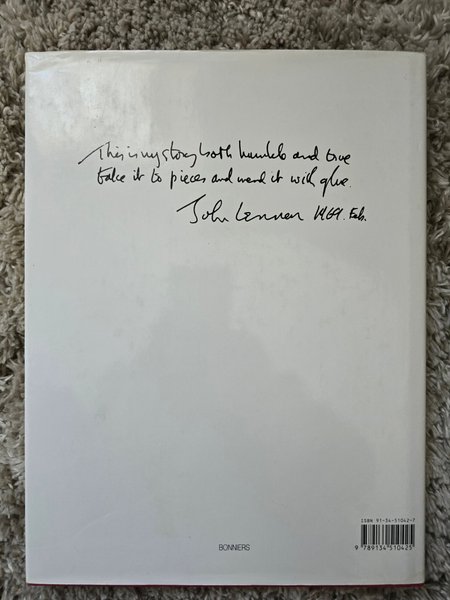 This is my story both humble and true
take it to pieces and mend it with glue.
John Lennon 1969. Feb.
ISBN 91-34-51042-7
9 789134 510425
BONNIERS